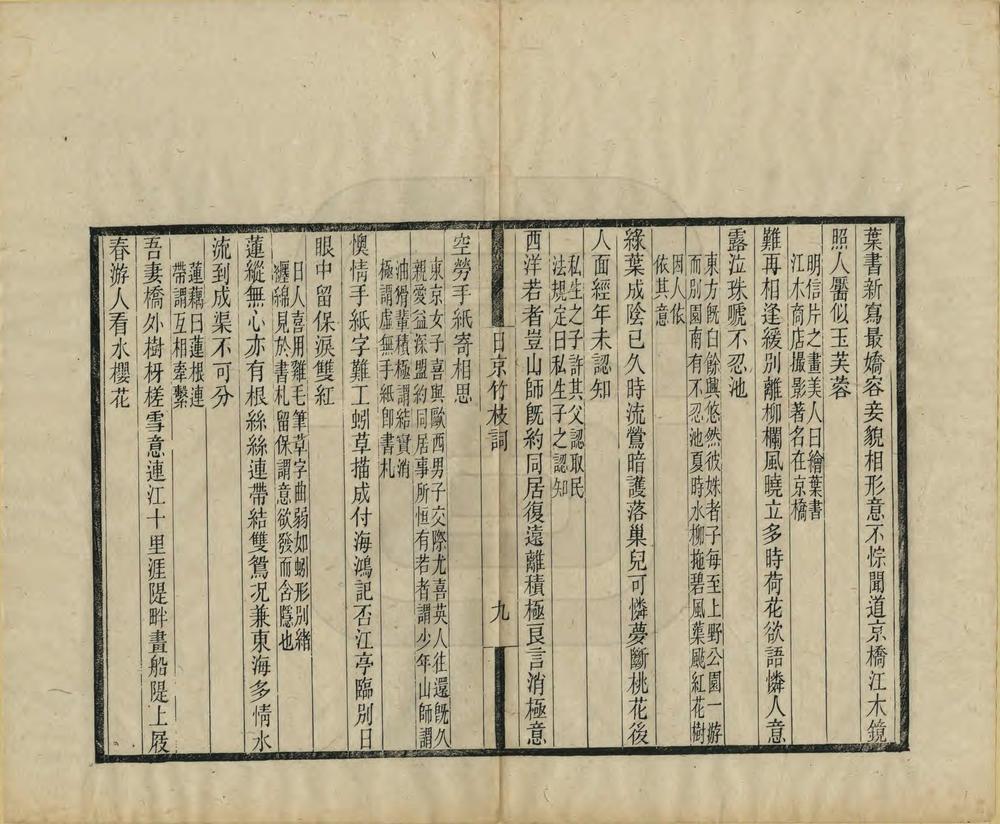 葉書新寫最嬌容妾貌相形意不悰聞道京橋江木鏡
照人靨似玉芙蓉
明信片之畫美人曰繪葉書
江木商店撮影著名在京橋
難再相逢緩別離柳欄風曉立多時荷花欲語憐人意
露泣珠啼不忍池
東方既白餘興悠然彼姝者子每至上野公園一游
而別園南有不忍池夏時水柳拖碧風葉颭紅花樹
因人依
依其意
綠葉成陰已久時流鶯暗護落巢兒可憐夢斷桃花後
人面經年未認知
私生之子許其父認取民
法規定曰私生子之認知
西洋若者豈山師既約同居復遠離積極良言消極意
日京竹枝詞
九
空勞手紙寄相思
東京女子喜與歐西男子交際尤喜英人往還既久
親愛益深盟約同居事所恒有若者謂少年山師謂
油滑輩積極謂結實消
極謂虛無手紙即書札
懊情手紙字難工蚓草描成付海鴻記否江亭臨別日
眼中留保淚雙紅
日人喜用雞毛筆草字曲弱如蚓形別緒
纏綿見於書札留保謂意欲發而含隱也
蓮縱無心亦有根絲絲連帶結雙鴛况兼東海多情水
流到成渠不可分
蓮藕曰蓮根連
帶謂互相牽繫
吾妻橋外樹枒槎雪意連江十里涯隄畔畫船隄上屐
春游人看水櫻花